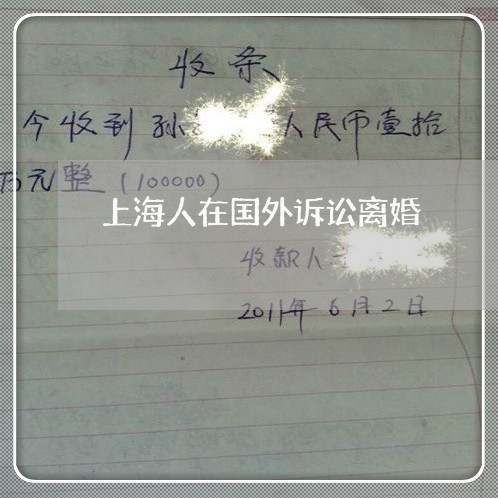 收条
今收到孙 人民币壹拾
万元整(100000)
上海人在国外诉讼离婚
收款人
2011年6月2日